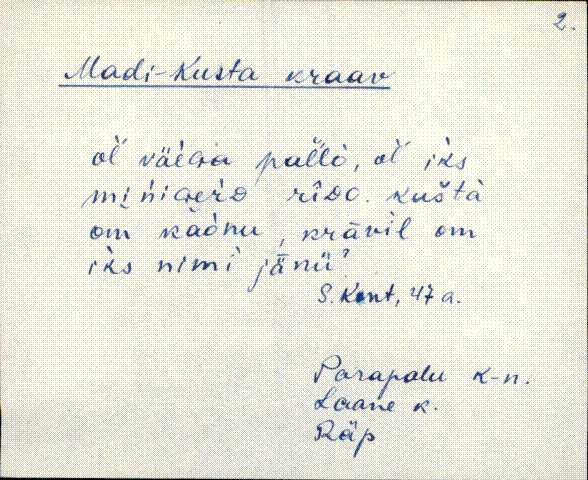 2.
Madi-Kusta kraav
ol̀ väèGa pul̀lò, ol̀ iks
mińiGeìD rîDo. kuštà
om kàònu, krāvil om
iks nimi jānü?
S. Kont, 47 a.
Parapalu k-n.
Laane k.
Räp